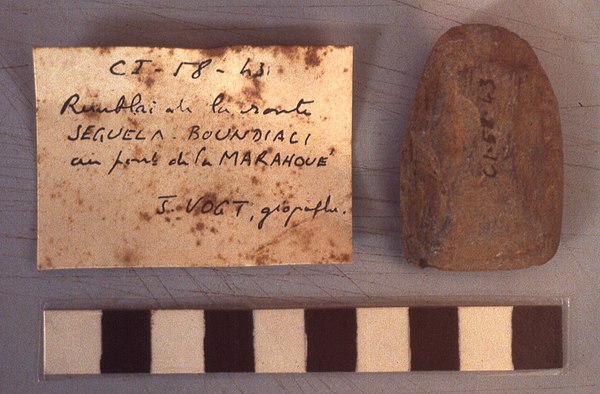 CI-58-43
Remblai de la route
SEGUELA-BOUNDIALI
au pont de la MARAHOUÉ
J. VOGT, géographe.
CI-58-43